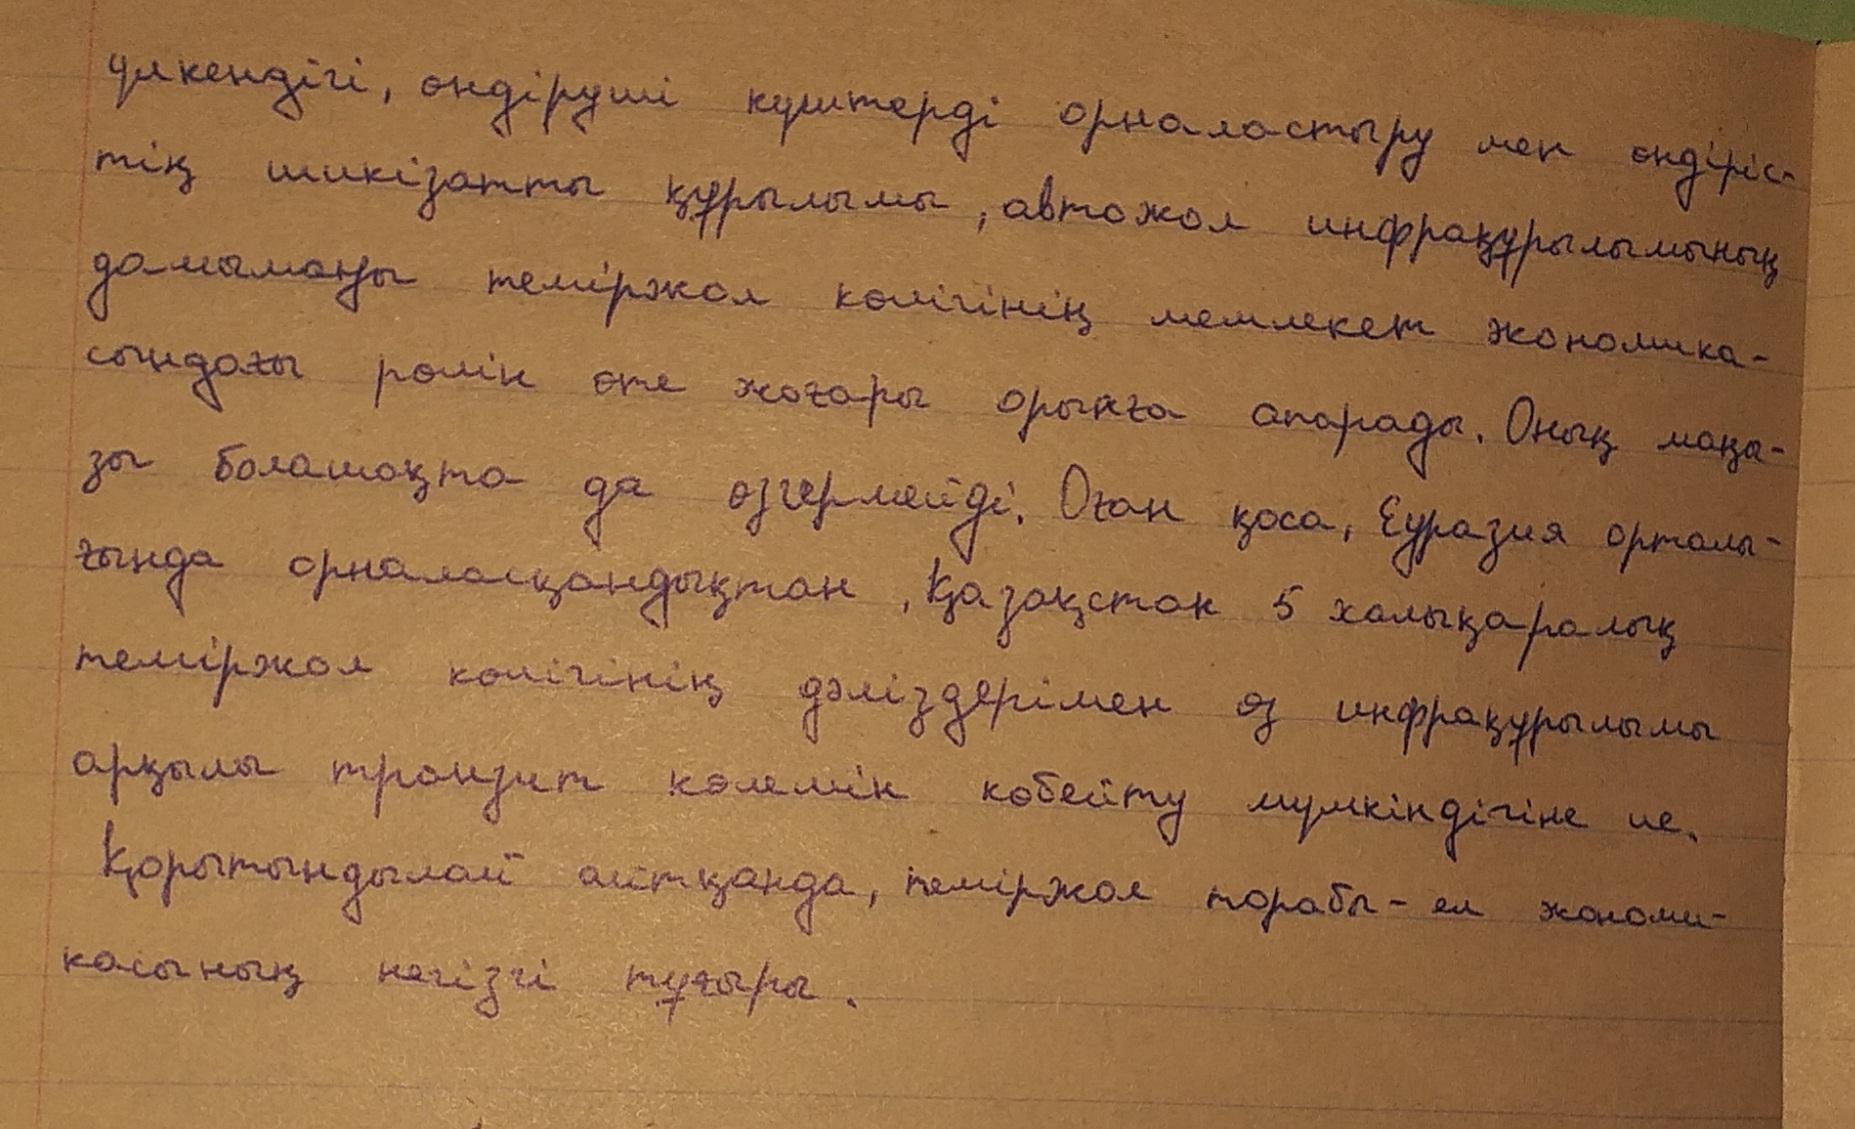 үлкендігі, өндіруші күштерді орналастыру мен өндіріс-
тің шикізатты құрылымы, автожол инфрақұрылымының
дамымауы теміржол көлігінің мемлекет экономика-
сындағы рөлін өте жоғары орынға апарады. Оның маңы-
зы болашақта да өзгермейді. Оған қоса, Еуразия орталы-
ғында орналасқандықтан, Қазақстан 5 халықаралық
теміржол көлігінің дәліздерімен өз инфрақұрылымы
арқылы транзит көлемін көбейту мүмкіндігіне ие.
Қорытындылай айтқанда, теміржол торабы - ел экономи-
касының негізгі тұғыры.